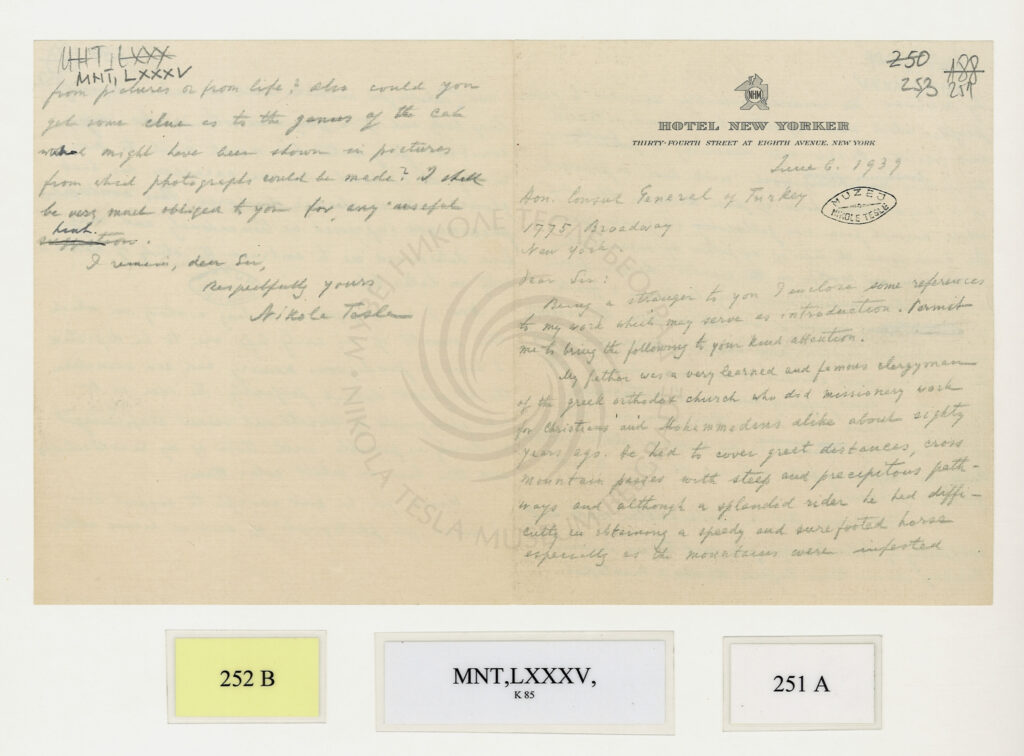 MNT, LXXX
MNT, LXXXV
from pictures or from life? Also could you
get some clue as to the genus of the cat
might have been shown in pictures
from which photographs could be made? I shall
be very much obliged to you for any useful
hint.
suggestions.
I remain, dear Sir,
Respectfully yours
Nikola Tesla
250
253
188
251
NHM
HOTEL NEW YORKER
THIRTY-FOURTH STREET AT EIGHTH AVENUE, NEW YORK
June 6. 1939
MUZEJ
NIKOLE TESLE
Hon. Consul General of Turkey
1775, Broadway
New York
Dear Sir:
Being a stranger to you I enclose some references
to my work which may serve as introduction. Permit
me to bring the following to your kind attention.
My father was a very learned and famous clergyman
of the greek orthodox church who did missionary work
for Christians and Mohammedans alike about eighty
years ago. He had to cover great distances, cross
mountain passes with steep and precipitous path-
ways and although a splendid rider he had diffi-
culty in obtaining a speedy and surefooted horse
especially as the mountains were infested
НИКОЛЕ ТЕСЛЕ БЕОГРАД
NIKOLA TESLA MUSEUM
252 B
MNT,LXXXV,
K 85
251 A